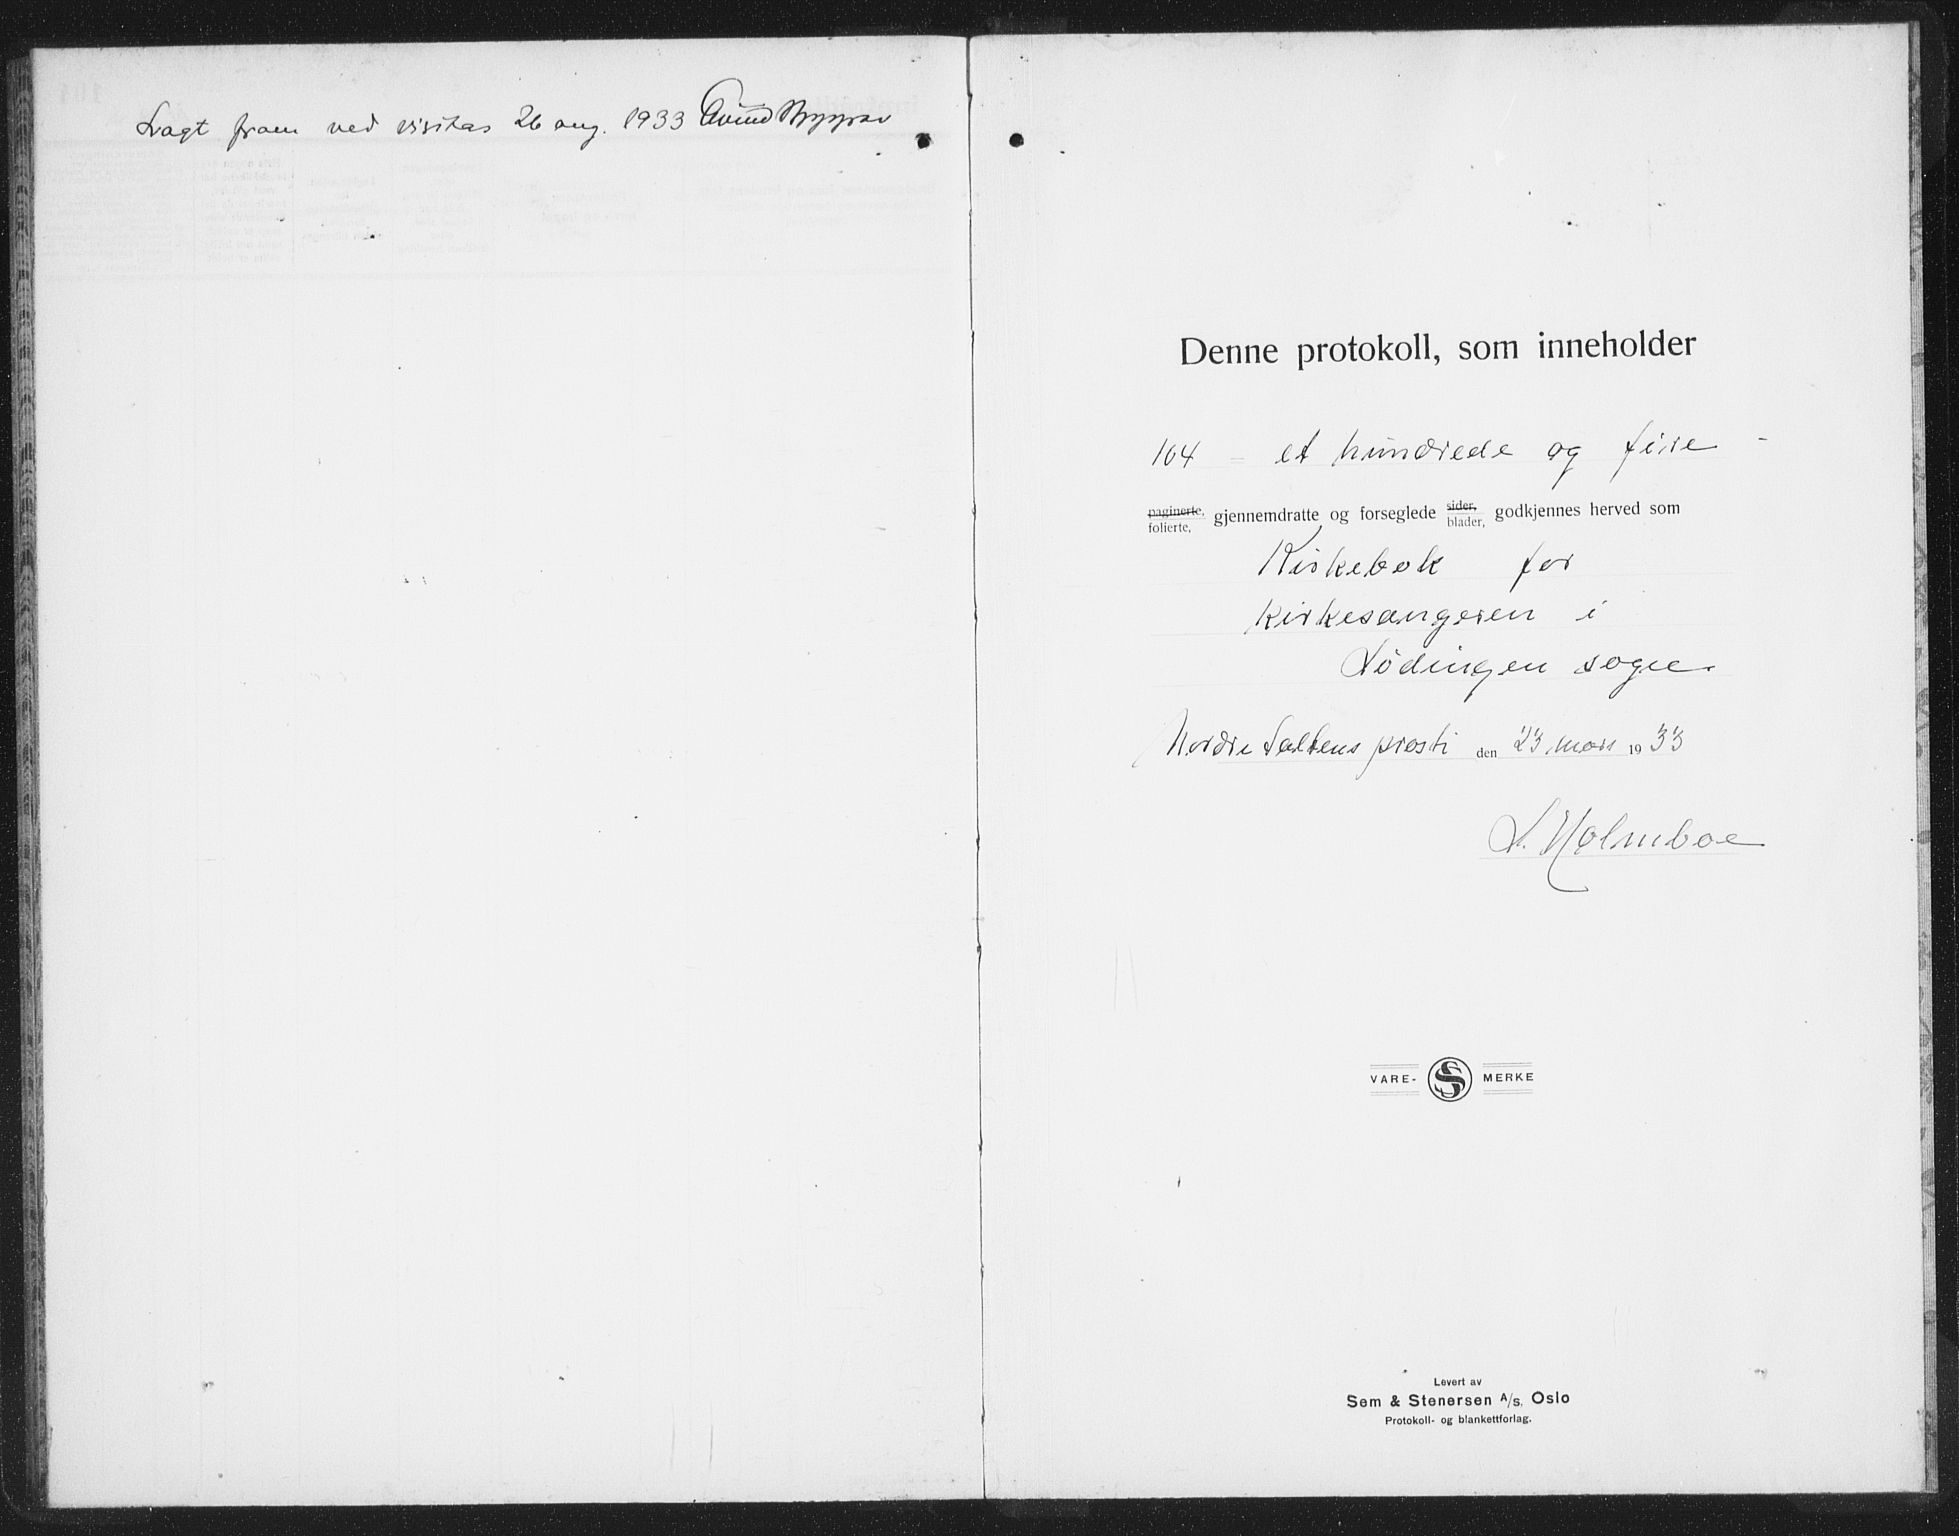 Lagt fram ved visitas 26 aug. 1933 Eivind Berggrav
Denne protokoll, som inneholder
104 - et hundrede og fire -
paginerte, folierte, gjennemdratte og forseglede sider, blader, godkjennes herved som
Kirkebok for
kirkesangeren i
Lødingen sogn.
Nordre Saltens prosti den 23 mars 1933
L. Holmboe
VARE- S MERKE
Levert av
Sem & Stenersen A/S, Oslo
Protokoll- og blankettforlag.